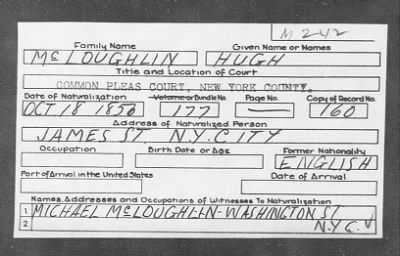 M242
Family Name Given Name or Names
McLOUGHLIN HUGH
Title and Location of Court
COMMON PLEAS COURT, NEW YORK COUNTY.
Date of Naturalization Volume or Bundle No. Page No. Copy of Record No.
OCT 18 1856 177 — 160
Address of Naturalized Person
JAMES ST. N.Y.CITY
Occupation Birth Date or Age Former Nationality
ENGLISH
Port of Arrival in the United States Date of Arrival
Names, Addresses and Occupations of Witnesses To Naturalization
1 MICHAEL McLOUGHLIN-WASHINGTON ST.
2 N.Y.C.